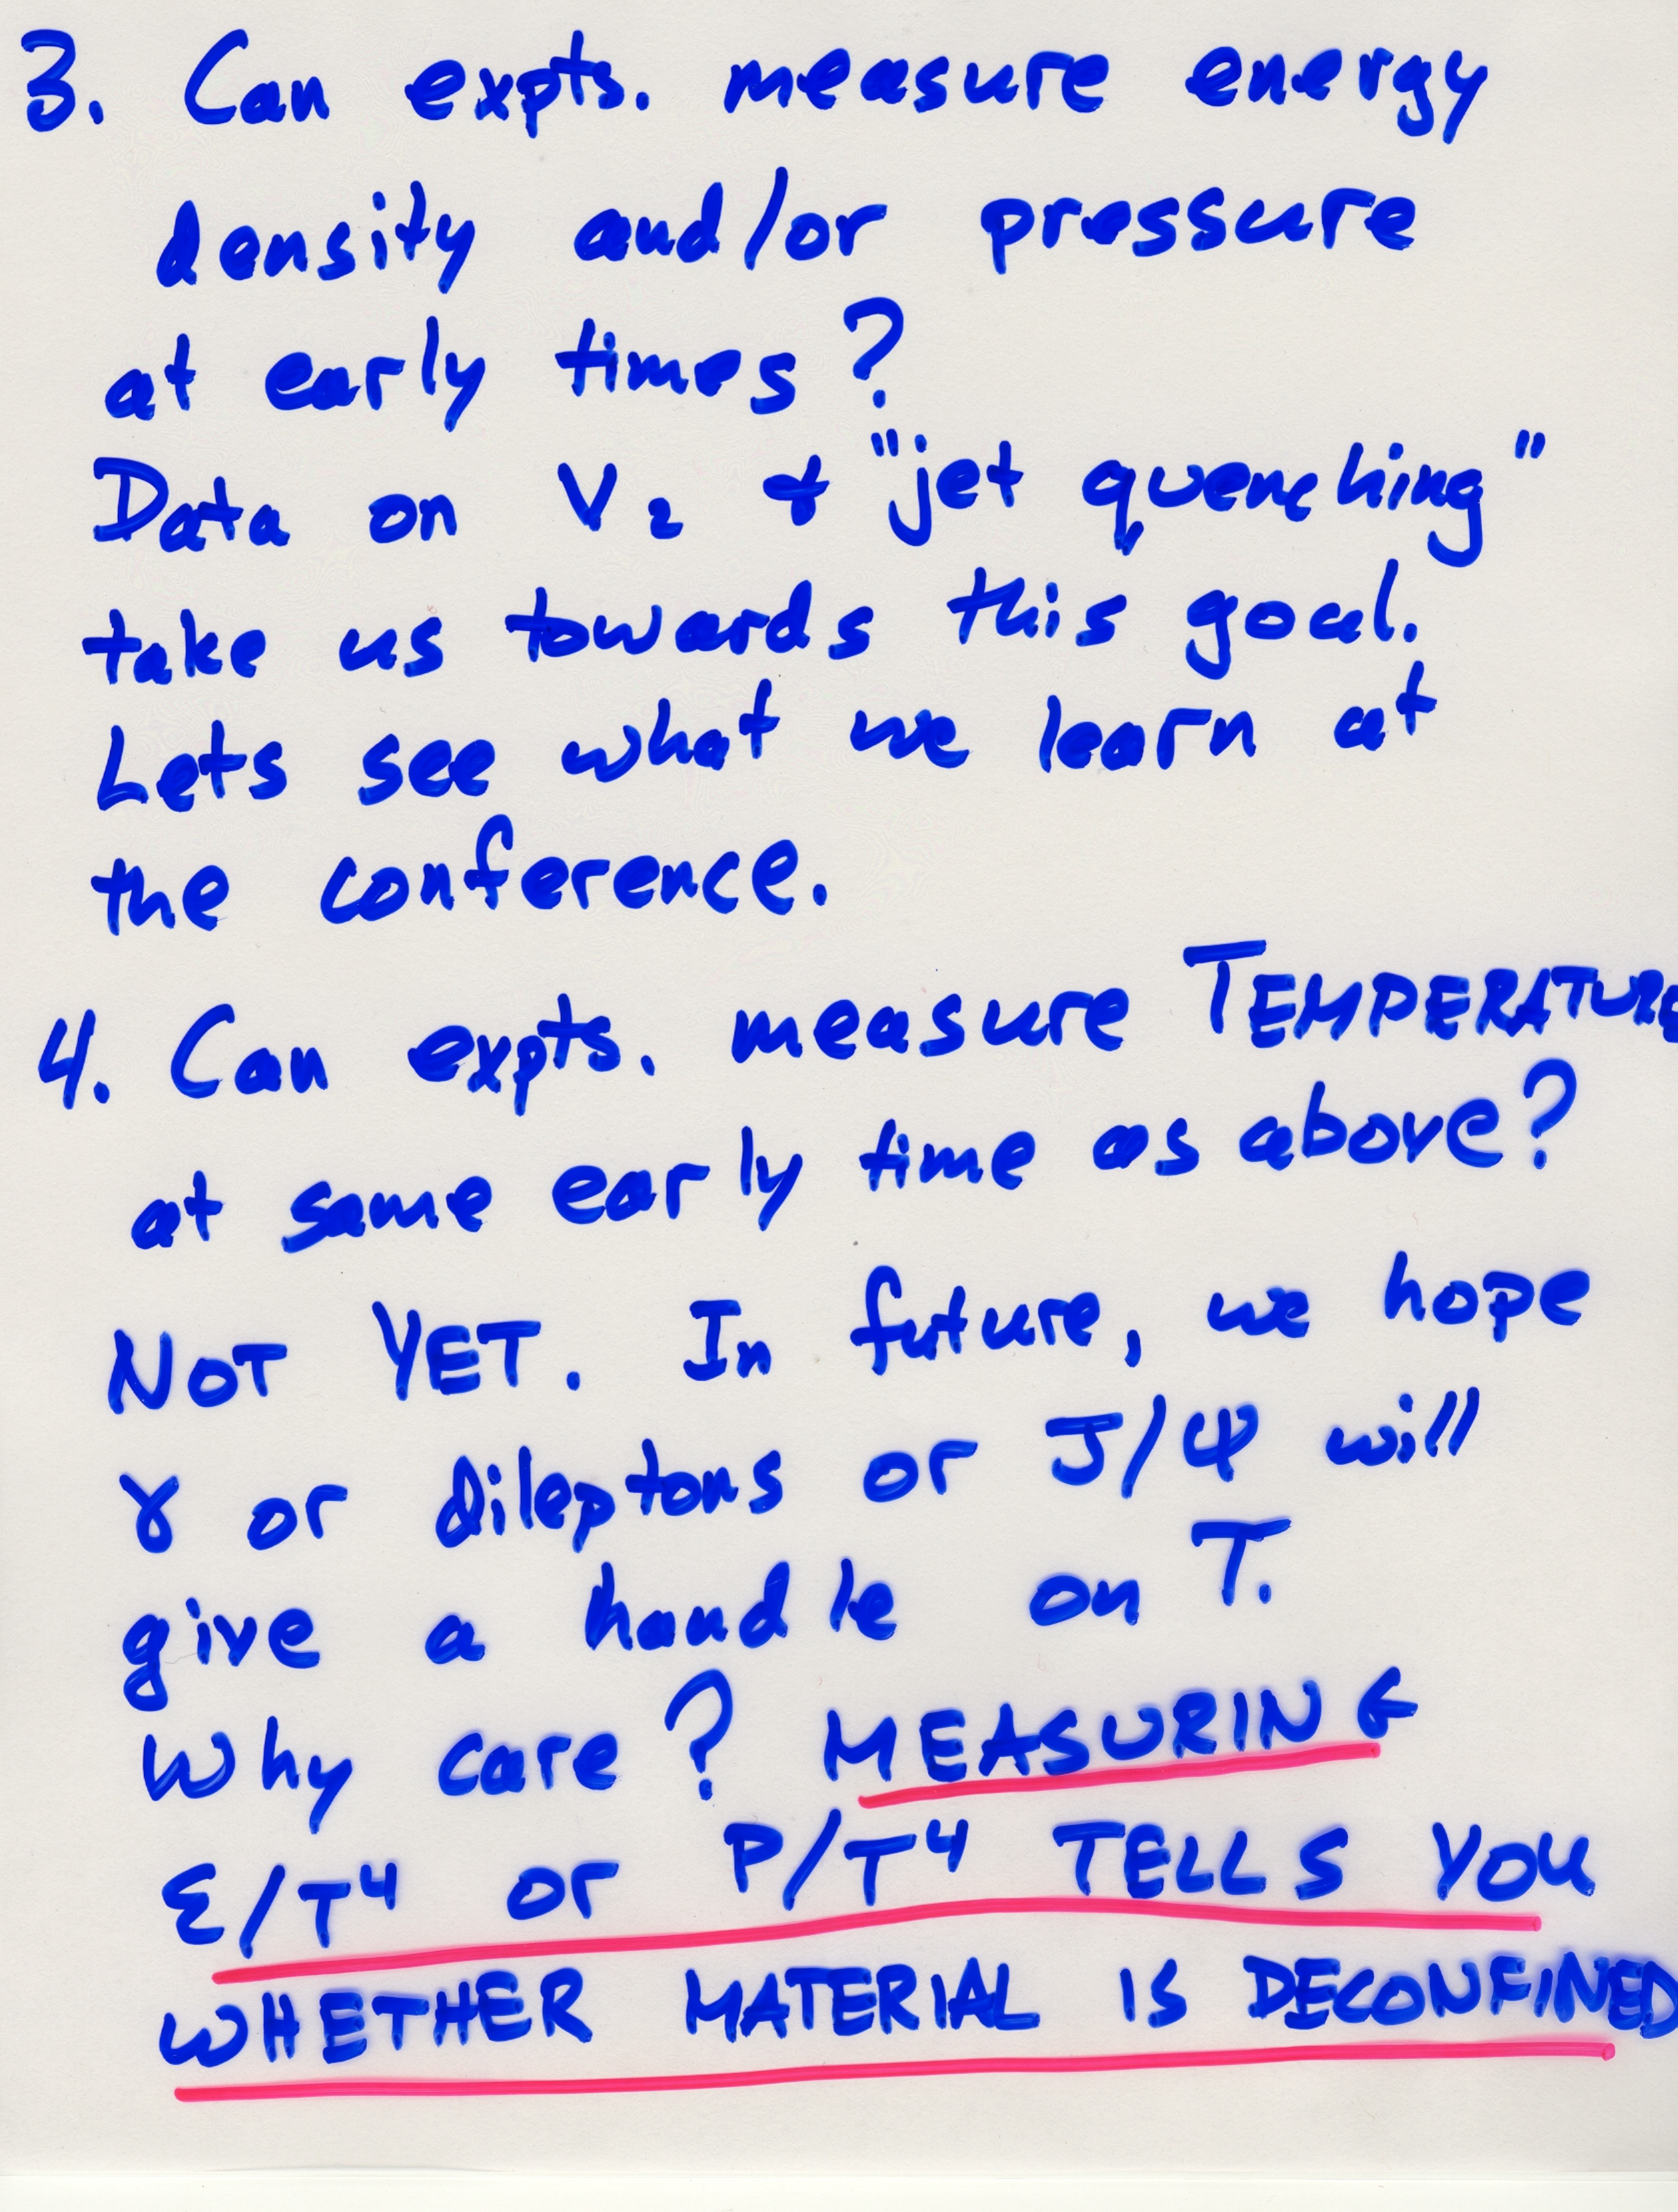 3. Can expts. measure energy
density and/or pressure
at early times?
Data on V₂ & "jet quenching"
take us towards this goal.
Lets see what we learn at
the conference.
4. Can expts. measure TEMPERATURE
at same early time as above?
NOT YET. In future, we hope
γ or dileptons or J/Ψ will
give a handle on T.
Why care? MEASURING
ε/T⁴ or P/T⁴ TELLS YOU
WHETHER MATERIAL IS DECONFINED